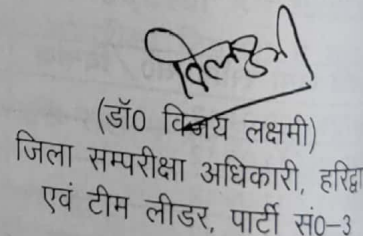 (डॉ0 विजय लक्ष्मी)
जिला सम्परीक्षा अधिकारी, हरिद्वा
एवं टीम लीडर, पार्टी सं0-3